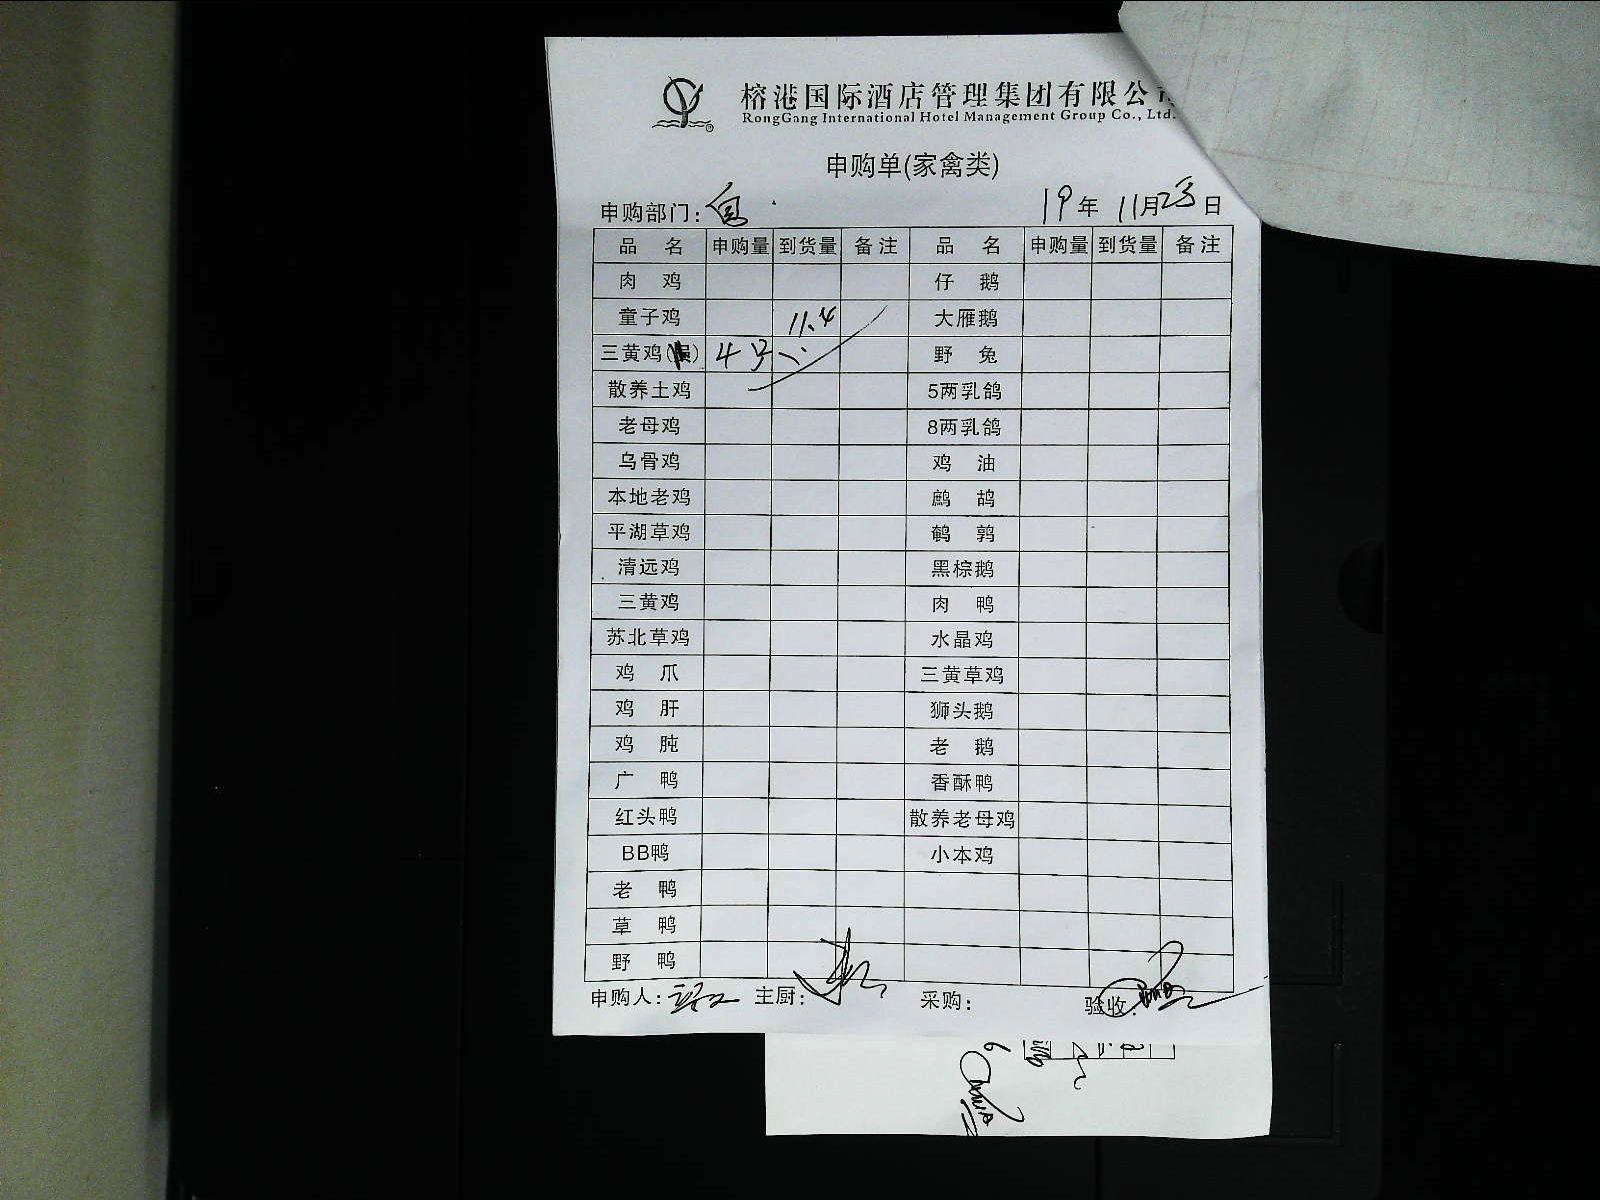 榕港国际酒店管理集团有限公司
RongGang International Hotel Management Group Co., Ltd.
申购单(家禽类)
申购部门: 19年 11月25日
品 名 申购量 到货量 备注 品 名 申购量 到货量 备注
肉 鸡 仔 鹅
童子鸡 11.4 大雁鹅
三黄鸡 4只 野 兔
散养土鸡 5两乳鸽
老母鸡 8两乳鸽
乌骨鸡 鸡 油
本地老鸡 鹧 鸪
平湖草鸡 鹌 鹑
清远鸡 黑棕鹅
三黄鸡 肉 鸭
苏北草鸡 水晶鸡
鸡 爪 三黄草鸡
鸡 肝 狮头鹅
鸡 肫 老 鹅
广 鸭 香酥鸭
红头鸭 散养老母鸡
BB鸭 小本鸡
老 鸭
草 鸭
野 鸭
申购人: 主厨: 采购: 验收: